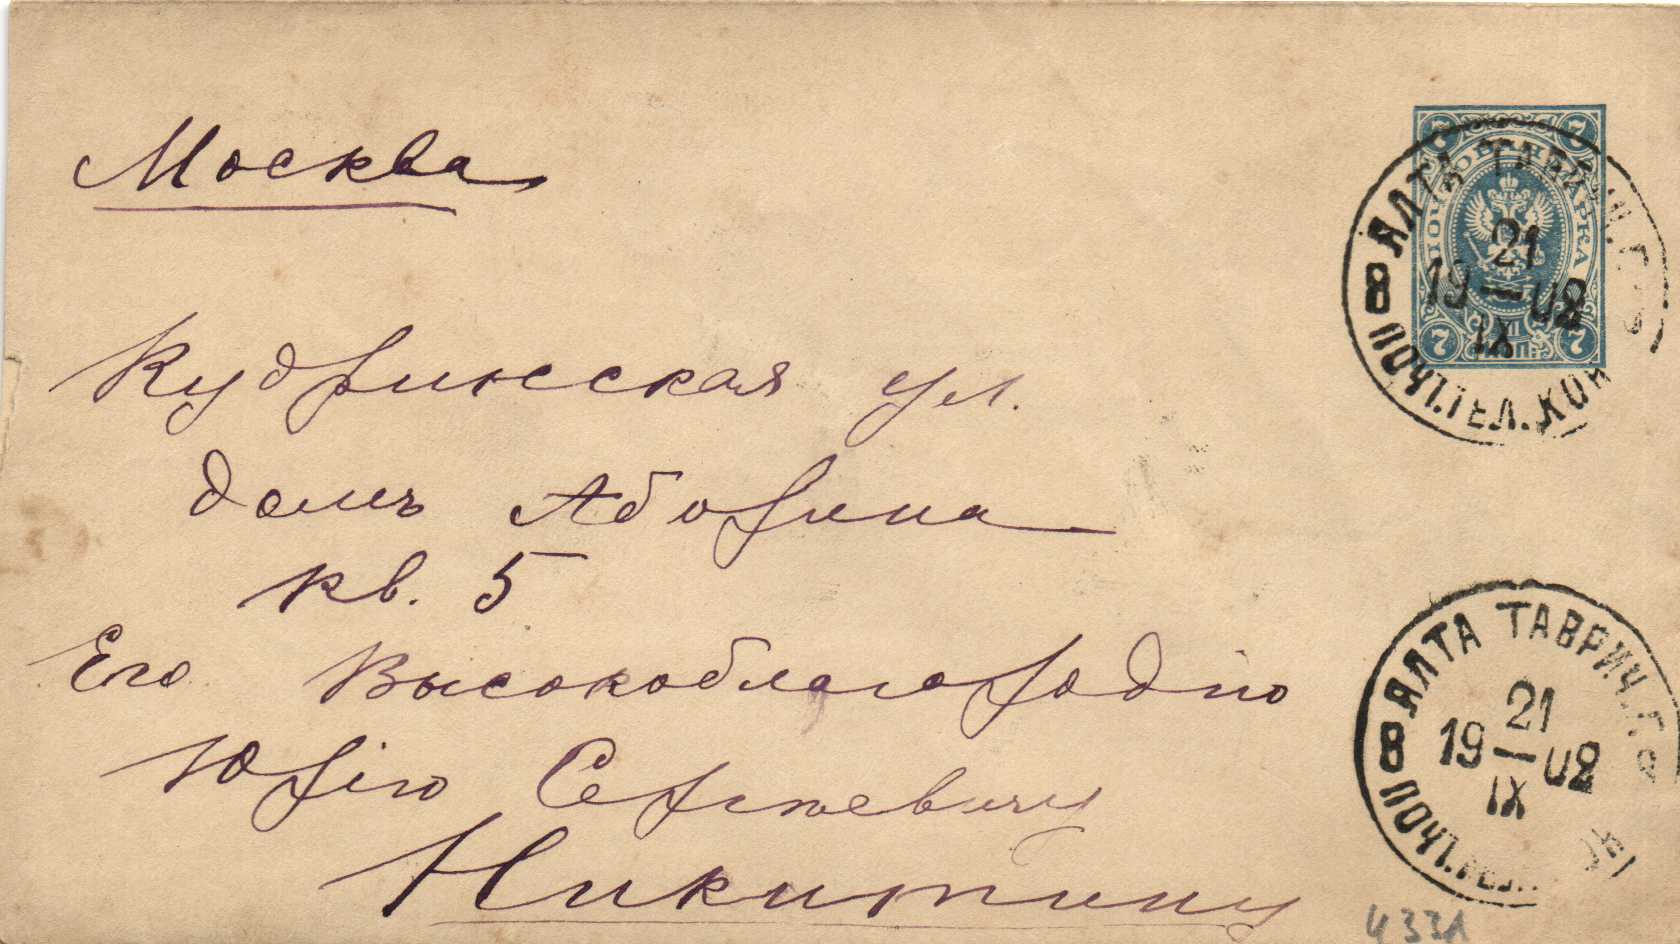 Москва
Кудринская ул.
домъ Аборина
кв. 5
Его Высокоблагородію
Юрію Сергѣевичу
Никитину
7 7
ПОЧТОВАЯ МАРКА
7 7
ЯЛТА ТАВРИЧ. Г.
21
19—02
IX
В ПОЧ.ТЕЛ.КОН
ЯЛТА ТАВРИЧ. Г.
21
19—02
IX
В ПОЧ.ТЕЛ.
4331